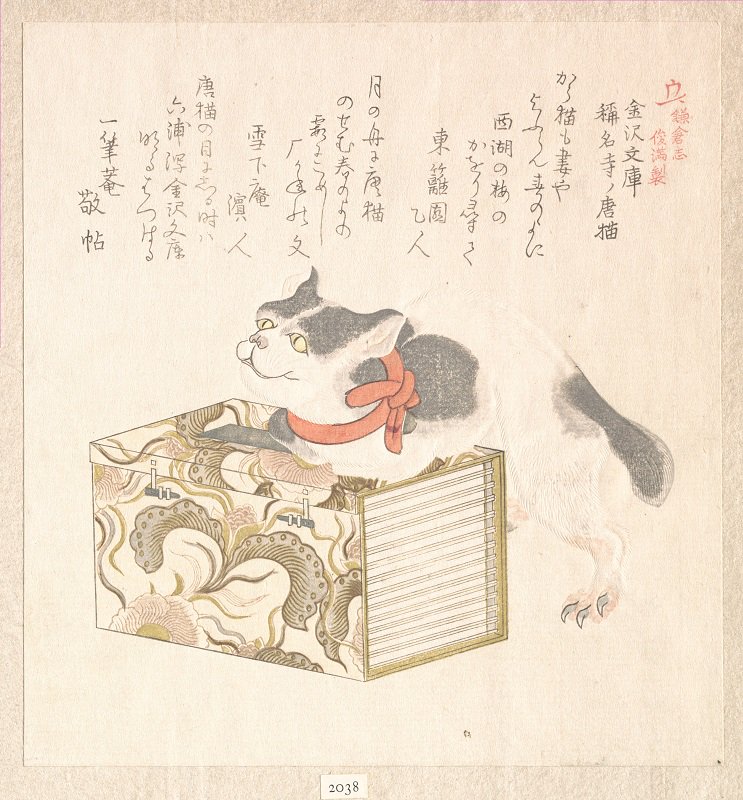 鎌倉志
俊満製
金沢文庫
稱名寺ノ唐猫
から猫も妻や
よふらん春のよに
西湖の梅の
かをり尋て
東籬園
乙人
月の舟に唐猫
のせむ春のよの
文
雪下庵
濱人
唐猫の目にしる時ハ
六浦浮金沢文庫
明るはつ
一筆菴
敬帖
2038